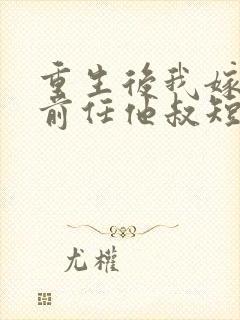 重生後我嫁
前任他叔短
尤權